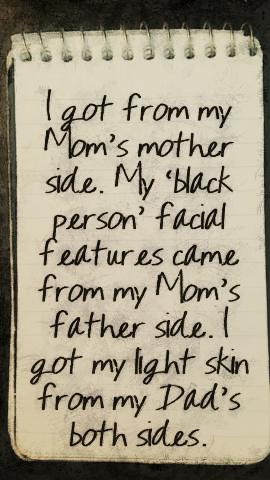 I got from my
Mom's mother
side. My 'black
person' facial
features came
from my Mom's
father side. I
got my light skin
from my Dad's
both sides.